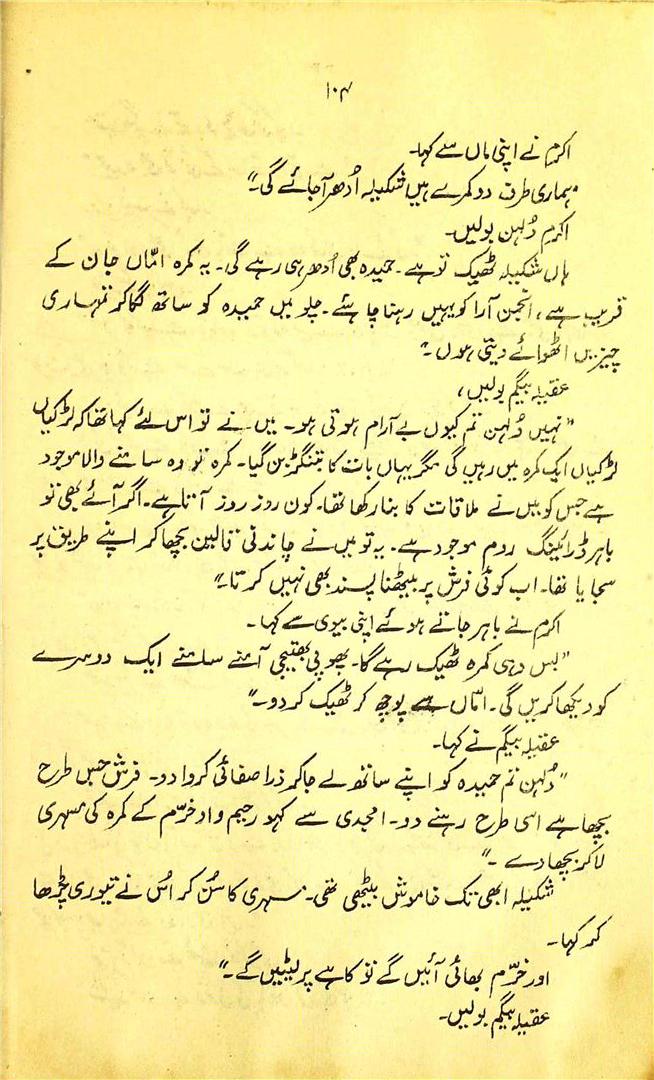 ۱۰۴
اکرم نے اپنی ماں سے کہا۔
ہماری طرف دو کمرے ہیں شکیلہ اُدھر آجائے گی۔"
اکرم دُلہن بولیں۔
ہاں شکیلہ ٹھیک تو ہے۔ حمیدہ بھی اُدھر ہی رہے گی۔ یہ کمرہ امّاں جان کے
قریب ہے، انجمن آرا کو یہیں رہنا چاہئے۔ چلو میں حمیدہ کو ساتھ لگا کر تمہاری
چیزیں اٹھوائے دیتی ہوں۔"
عقیلہ بیگم بولیں،
"نہیں دُلہن تم کیوں بے آرام ہوتی ہو۔ میں نے تو اس لئے کہا تھا کہ لڑکیاں
لڑکیاں ایک کمرہ میں رہیں گی مگر یہاں بات کا بتنگڑ بن گیا۔ کمرہ تو وہ سامنے والا موجود
ہے جس کو میں نے ملاقات کا بنا رکھا تھا۔ کون روز روز آتا ہے۔ اگر آئے بھی تو
باہر ڈرائینگ روم موجود ہے۔ یہ تو میں نے چاندنی قالین بچھا کر اپنے طریق پر
سجایا تھا۔ اب کوئی فرش پر بیٹھنا پسند بھی نہیں کرتا۔"
اکرم نے باہر جاتے ہوئے اپنی بیوی سے کہا۔
"بس وہی کمرہ ٹھیک رہے گا۔ پھوپی بھتیجی آمنے سامنے ایک دوسرے
کو دیکھا کریں گی۔ امّاں سے پوچھ کر ٹھیک کر دو۔"
عقیلہ بیگم نے کہا۔
"دُلہن تم حمیدہ کو اپنے ساتھ لے جا کر ذرا صفائی کروا دو۔ فرش جس طرح
بچھا ہے اسی طرح رہنے دو۔ امجدی سے کہو رحیم داد خرّم کے کمرہ کی مسہری
لا کر بچھا دے۔"
شکیلہ ابھی تک خاموش بیٹھی تھی۔ مسہری کا سُن کر اُس نے تیوری چڑھا
کر کہا۔
اور خرّم بھائی آئیں گے تو کاہے پر لیٹیں گے۔"
عقیلہ بیگم بولیں۔